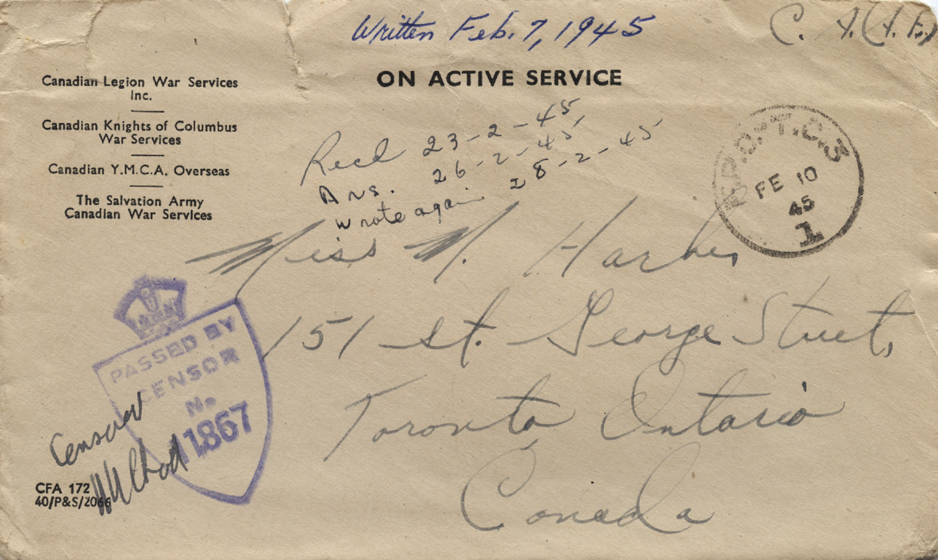 Written Feb. 7, 1945
C. A. (A. F.)
ON ACTIVE SERVICE
Canadian Legion War Services
Inc.
Canadian Knights of Columbus
War Services
Canadian Y.M.C.A. Overseas
The Salvation Army
Canadian War Services
Recd 23-2-45
Ans. 26-2-45
Wrote again 28-2-45
FE 10
45
1
Miss M.
151 St. George Street,
Toronto Ontario
Canada
PASSED BY
CENSOR
No
11867
Censored
CFA 172
40/P&S/2066